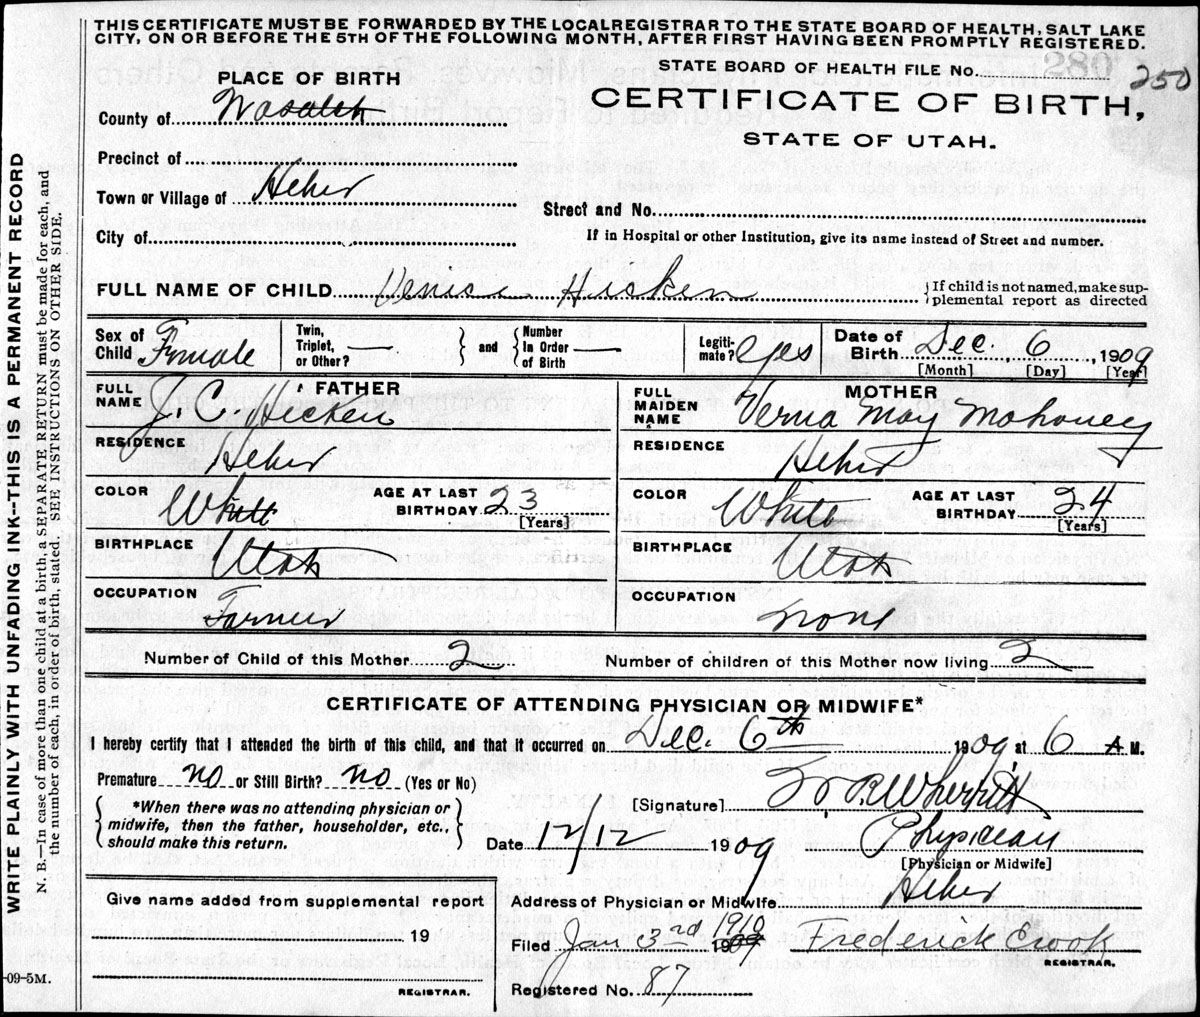 THIS CERTIFICATE MUST BE FORWARDED BY THE LOCAL REGISTRAR TO THE STATE BOARD OF HEALTH, SALT LAKE
CITY, ON OR BEFORE THE 5TH OF THE FOLLOWING MONTH, AFTER FIRST HAVING BEEN PROMPTLY REGISTERED.
STATE BOARD OF HEALTH FILE No. 280 250
PLACE OF BIRTH
CERTIFICATE OF BIRTH,
STATE OF UTAH.
County of Wasatch
Precinct of
Town or Village of Heber
Street and No.
City of
If in Hospital or other Institution, give its name instead of Street and number.
FULL NAME OF CHILD Venice Hicken
{If child is not named, make sup-
plemental report as directed
Sex of Child Female
Twin, Triplet, or Other? —
and
Number In Order of Birth —
Legiti-mate? yes
Date of Birth Dec. 6, 1909
[Month] [Day] [Year]
FATHER
FULL NAME J. C. Hicken
RESIDENCE Heber
COLOR White
AGE AT LAST BIRTHDAY 23 [Years]
BIRTHPLACE Utah
OCCUPATION Farmer
MOTHER
FULL MAIDEN NAME Verna May Mahoney
RESIDENCE Heber
COLOR White
AGE AT LAST BIRTHDAY 24 [Years]
BIRTHPLACE Utah
OCCUPATION None
Number of Child of this Mother 2
Number of children of this Mother now living 2
CERTIFICATE OF ATTENDING PHYSICIAN OR MIDWIFE*
I hereby certify that I attended the birth of this child, and that it occurred on Dec. 6th 1909 at 6 A.M.
Premature? no or Still Birth? no (Yes or No)
*When there was no attending physician or
midwife, then the father, householder, etc.,
should make this return.
[Signature] Wherritt
Date 12/12 1909
Physician
[Physician or Midwife]
Give name added from supplemental report
19
REGISTRAR.
Address of Physician or Midwife Heber
Filed Jan 3rd 1910 1909 Frederick Crook
REGISTRAR.
Registered No. 87
-09-5M.
WRITE PLAINLY WITH UNFADING INK--THIS IS A PERMANENT RECORD
N. B.—In case of more than one child at a birth, SEPARATE RETURN must be made for each, and
the number of each, in order of birth, stated. SEE INSTRUCTIONS ON OTHER SIDE.